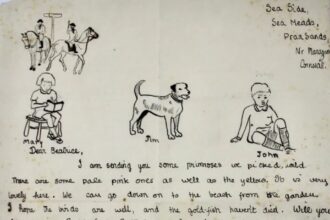 Sea Side,
Sea Meads,
Praa Sands,
Nr Marazion
Cornwall.
Mary
Jim
John
Dear Beatrice,
I am sending you some primroses we picked, wild
There are some pale pink ones as well as the yellow. It is very
lovely here. We can go down on to the beach from the garden.
I hope the birds are well, and the goldfish haven't died. Will you